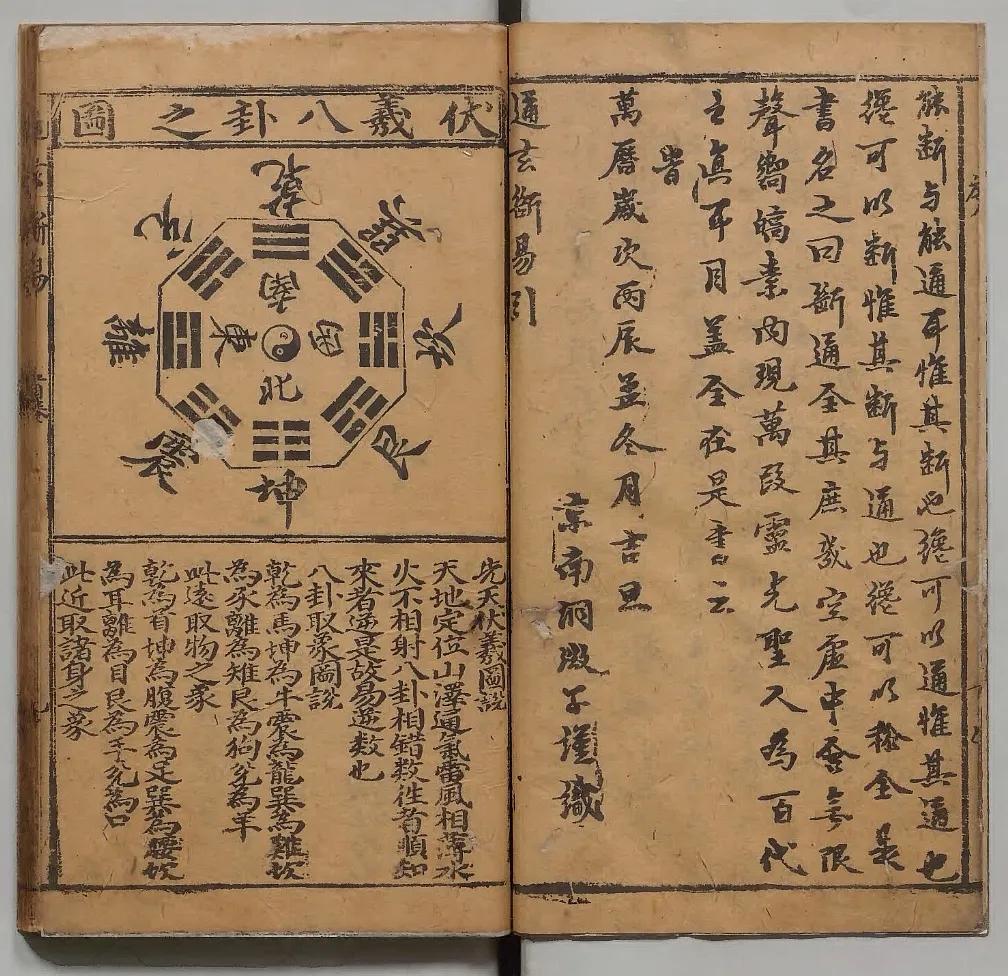 能斷与能通耳惟其斷也纔可以通惟其通也
纔可以斷惟其斷与通也纔可以稱全
書名之曰斷通全其庶幾空虛中無限
聲嚮縞素内現萬段靈光聖人為百代
主真耳目蓋全在是書云
旹
萬曆歲次丙辰孟冬月吉旦
京南洞微子謹識
通玄斷易引
伏羲八卦之圖
乾
兌
巽
離
坎
震
艮
坤
南
東
西
北
先天伏羲圖說
天地定位山澤通氣雷風相薄水
火不相射八卦相錯数往者順知
來者逆是故易逆数也
八卦取象圖說
乾為馬坤為牛震為龍巽為雞坎
為豕離為雉艮為狗兌為羊
此遠取物之象
乾為首坤為腹震為足巽為腰坎
為耳離為目艮為手兌為口
此近取諸身之象